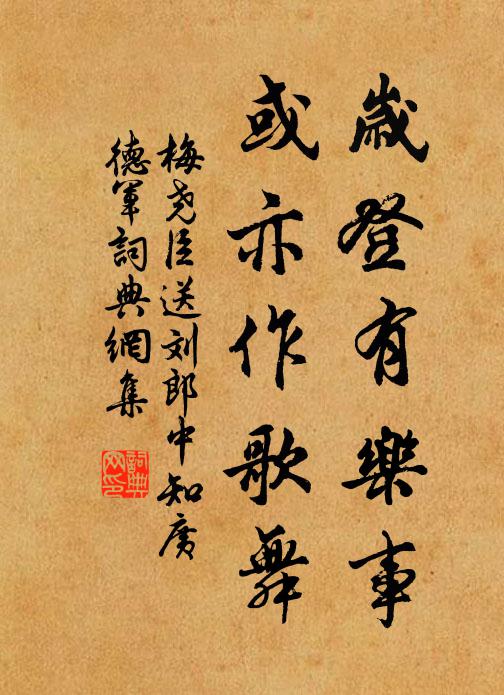 歲登有樂事
或亦作歌舞
梅尧臣送刘郎中知廣
德軍詞典網集
詞典
网印